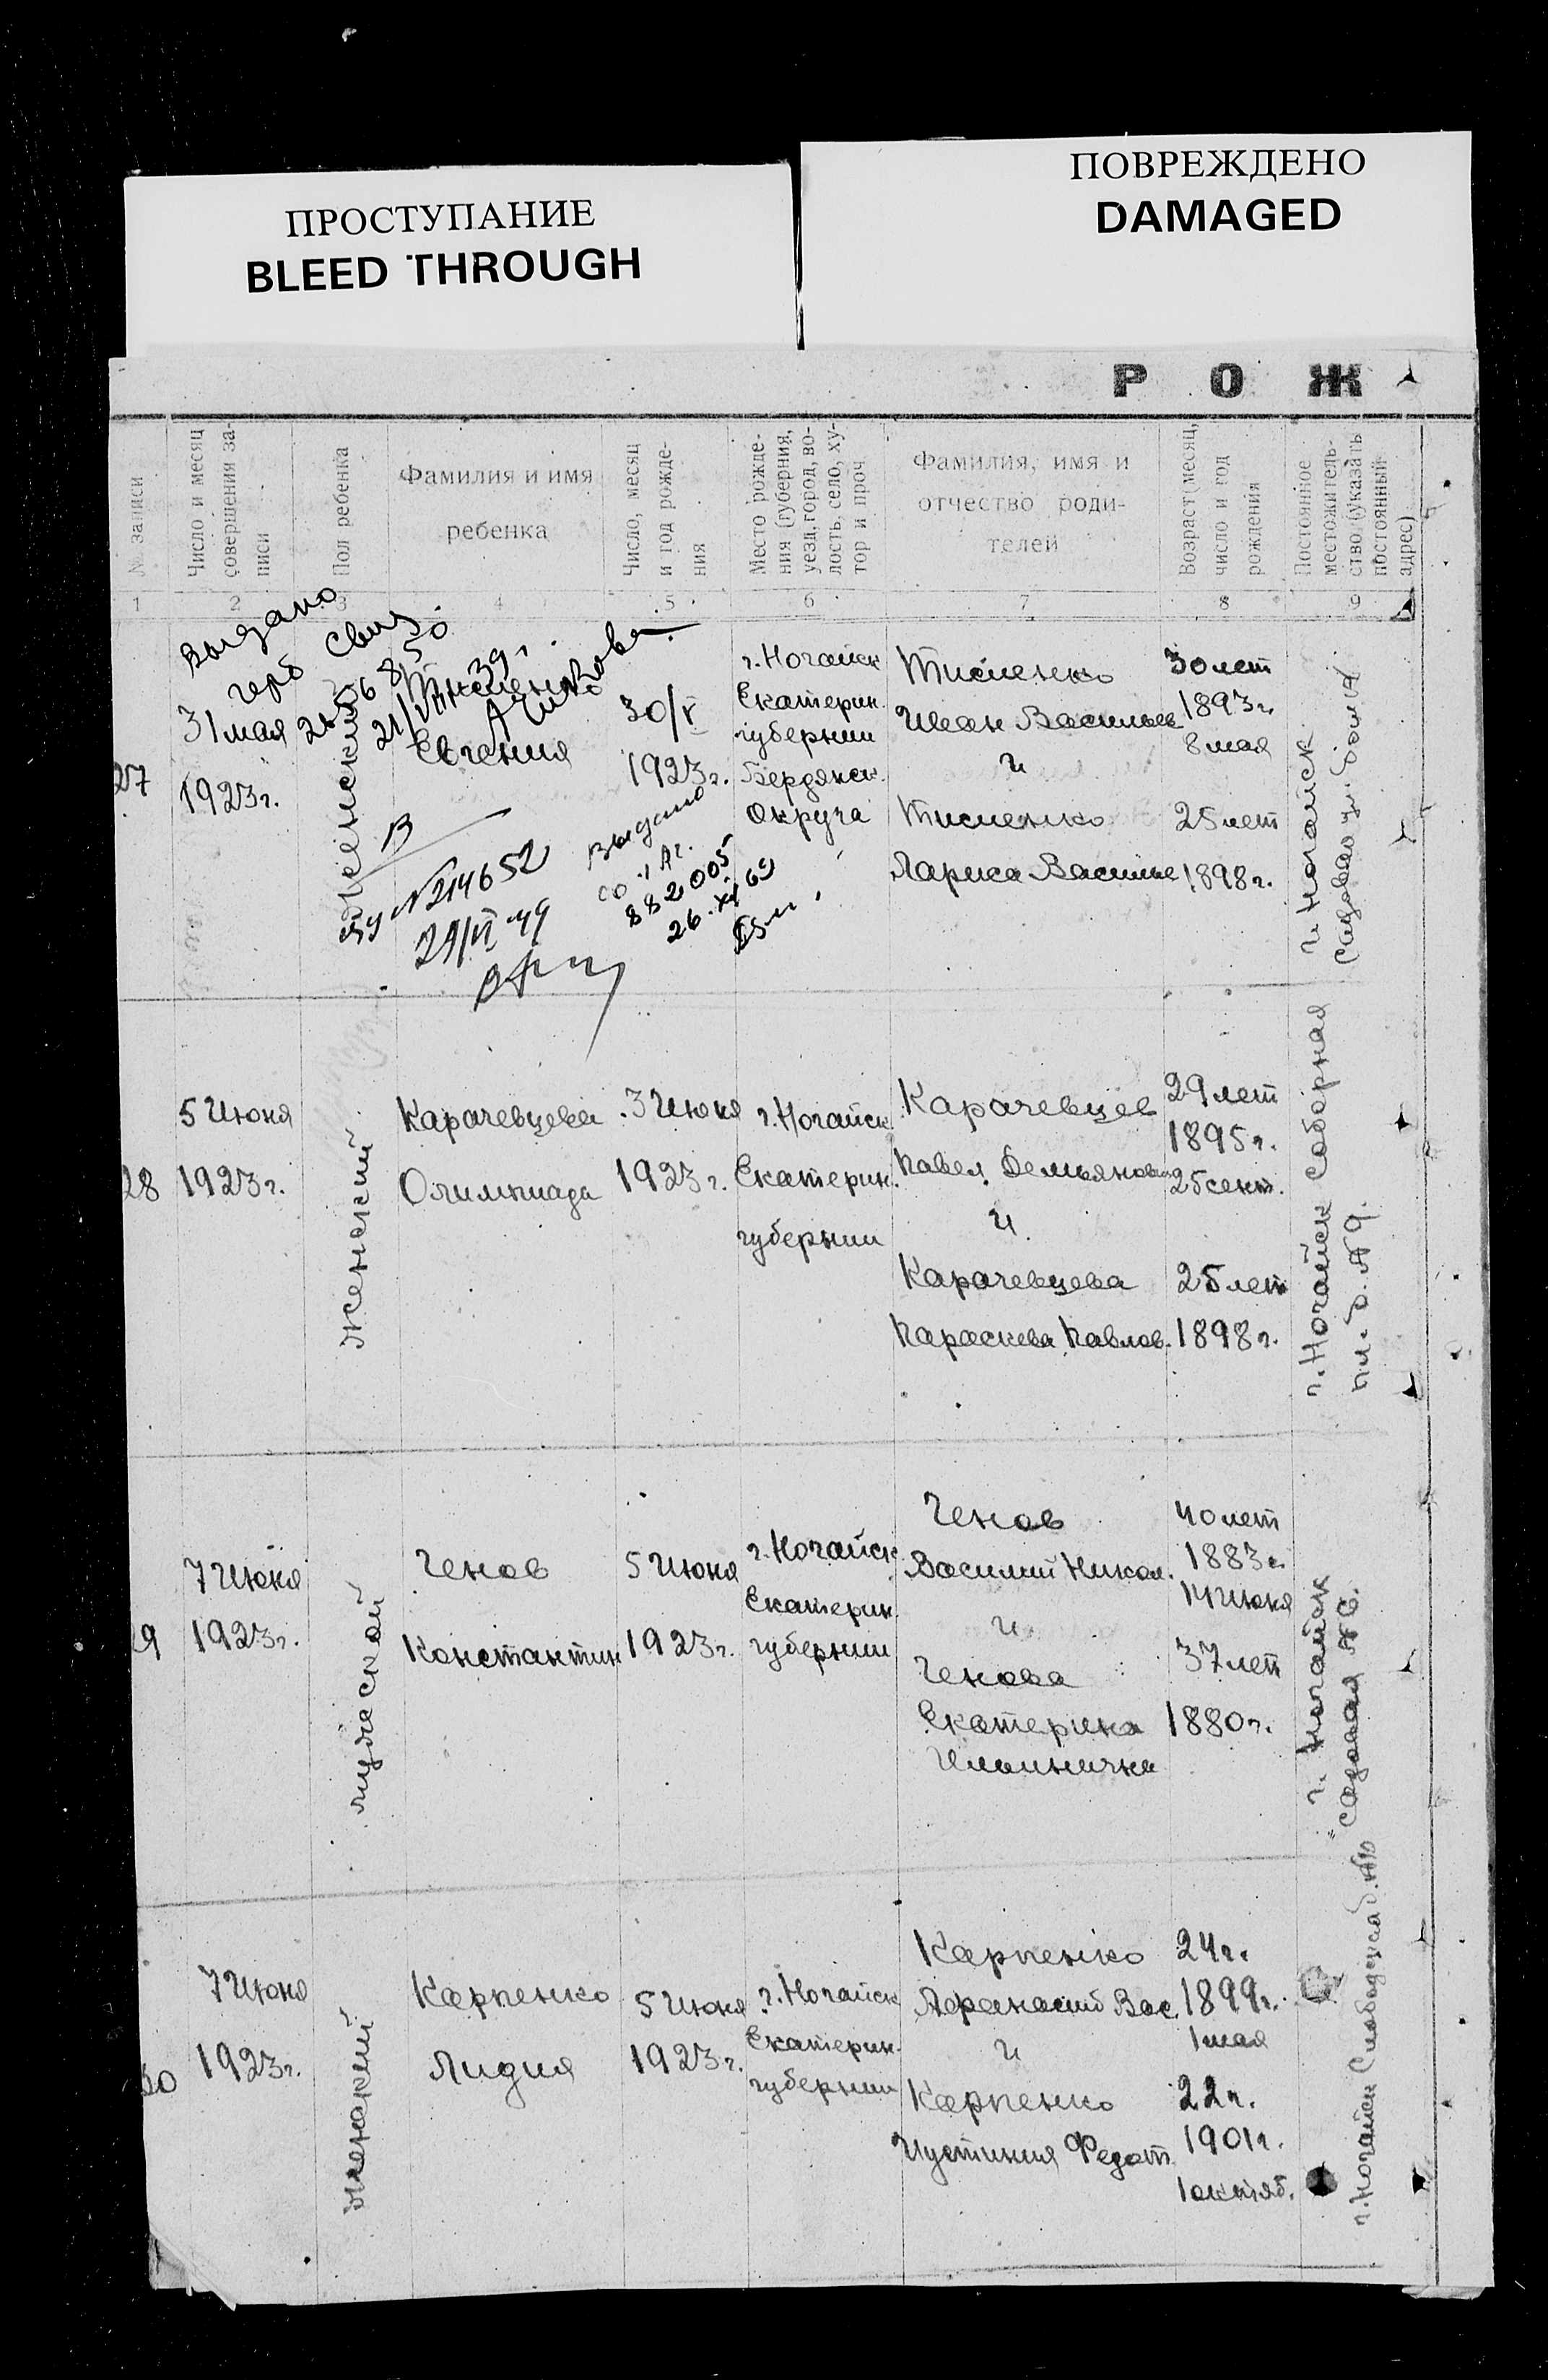 ПРОСТУПАНИЕ
BLEED THROUGH
ПОВРЕЖДЕНО
DAMAGED
Р О Ж
№ записи
Число и месяц
совершения за-
писи
Пол ребенка
Фамилия и имя
ребенка
Число, месяц
и год рожде-
ния
Место рожде-
ния (губерния,
уезд, город, во-
лость, село, ху-
тор и проч
Фамилия, имя и
отчество роди-
телей
Возраст (месяц,
число и год
рождения
Постоянное
местожитель-
ство (указать
постоянный
адрес)
1 2 3 4 5 6 7 8 9
выдано
герб свид
27
31 мая
1923 г.
Женский
Евгения
30/V
1923 г.
г. Ногайск
Екатерин.
губернии
Бердянск.
Округа
Тисленко
Иван Васильев
и
Тисленко
Лариса Василье
30 лет
1893 г.
8 мая
25 лет
1898 г.
г. Ногайск
Садовая ул.
№ 214652
29/VI 49
выдано
882005
26.XI 69
28
5 Июня
1923 г.
женский
Карачевцева
Олимпиада
3 Июня
1923 г.
г. Ногайск
Екатерин.
губернии
Карачевцев
Павел Демьянов
и
Карачевцева
Параскева Павлов.
29 лет
1895 г.
25 сент.
25 лет
1898 г.
г. Ногайск соборная
пл. д. № 9.
9
7 Июня
1923 г.
мужеской
Ченов
Константин
5 Июня
1923 г.
г. Ногайск
Екатерин.
губернии
Ченов
Василий Никол.
и
Ченова
Екатерина
Ильинична
40 лет
1883 г.
14 Июня
37 лет
1880 г.
г. Ногайск
садовая №
30
7 Июня
1923 г.
женский
Карпенко
Лидия
5 Июня
1923 г.
г. Ногайск
Екатерин.
губернии
Карпенко
Афанасий Вас
и
Карпенко
Иустиния Федот
24 г.
1899 г.
1 мая
22 г.
1901 г.
1 октяб.
г. Ногайск Слободская д. №